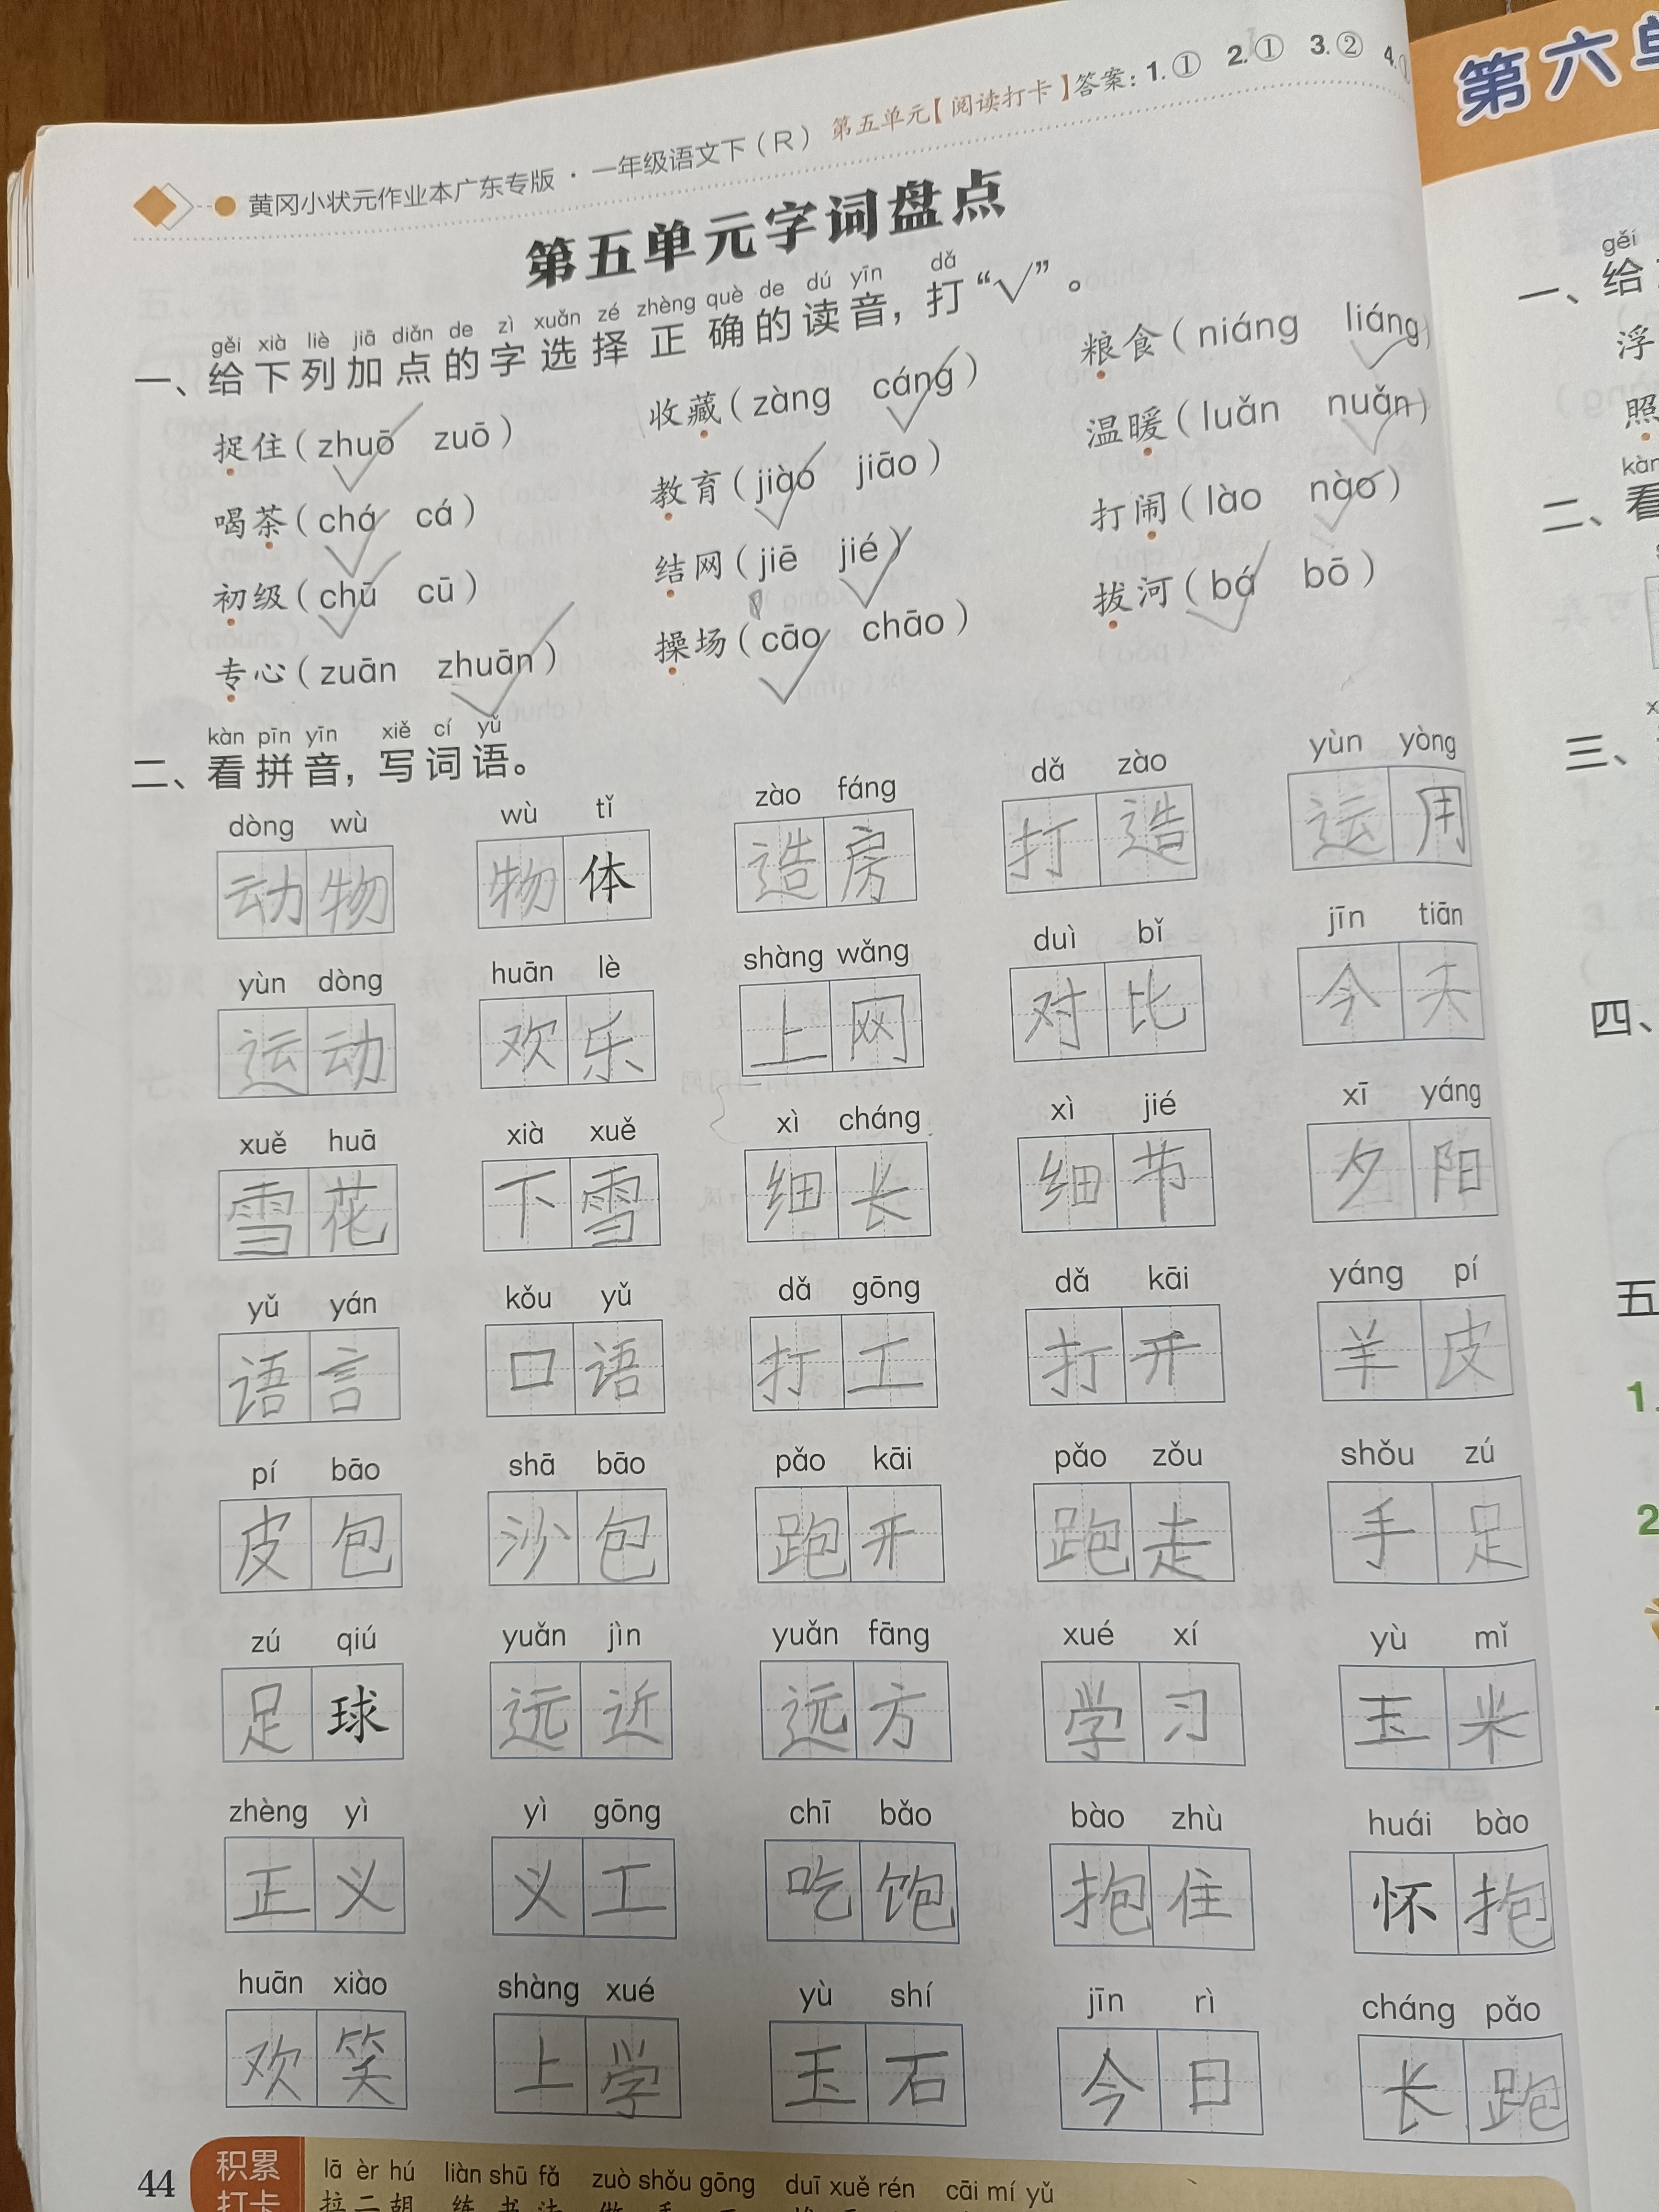 黄冈小状元作业本广东专版·一年级语文下(R) 第五单元【阅读打卡】答案:1.① 2.① 3.② 4.
第五单元字词盘点
gěi xià liè jiā diǎn de zì xuǎn zé zhèng què de dú yīn dǎ
一、给下列加点的字选择正确的读音,打“√”。
捉住(zhuō zuō) 收藏(zàng cáng) 粮食(niáng liáng)
喝茶(chá cá) 教育(jiào jiāo) 温暖(luǎn nuǎn)
初级(chū cū) 结网(jiē jié) 打闹(lào nào)
专心(zuān zhuān) 操场(cāo chāo) 拔河(bá bō)
kàn pīn yīn xiě cí yǔ
二、看拼音,写词语。
dòng wù wù tǐ zào fáng dǎ zào yùn yòng
动物 物体 造房 打造 运用
yùn dòng huān lè shàng wǎng duì bǐ jīn tiān
运动 欢乐 上网 对比 今天
xuě huā xià xuě xì cháng xì jié xī yáng
雪花 下雪 细长 细节 夕阳
yǔ yán kǒu yǔ dǎ gōng dǎ kāi yáng pí
语言 口语 打工 打开 羊皮
pí bāo shā bāo pǎo kāi pǎo zǒu shǒu zú
皮包 沙包 跑开 跑走 手足
zú qiú yuǎn jìn yuǎn fāng xué xí yù mǐ
足球 远近 远方 学习 玉米
zhèng yì yì gōng chī bǎo bào zhù huái bào
正义 义工 吃饱 抱住 怀抱
huān xiào shàng xué yù shí jīn rì cháng pǎo
欢笑 上学 玉石 今日 长跑
44 积累
打卡
lā èr hú liàn shū fǎ zuò shǒu gōng duī xuě rén cāi mí yǔ
拉二胡
第六单
gěi
一、给
浮
照
kàn
二、看
三、
四、
五
1.
2